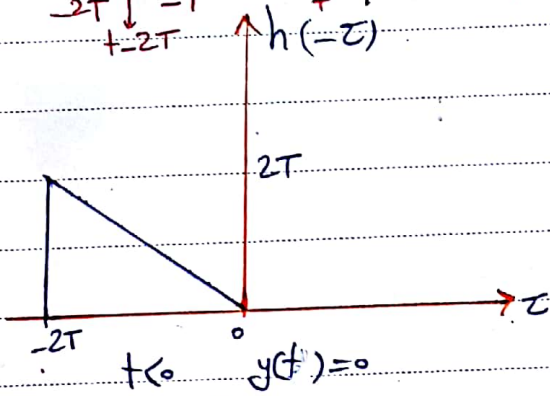 -2T -T
t-2T
h(-τ)
2T
τ
-2T 0
t<0 y(t)=0